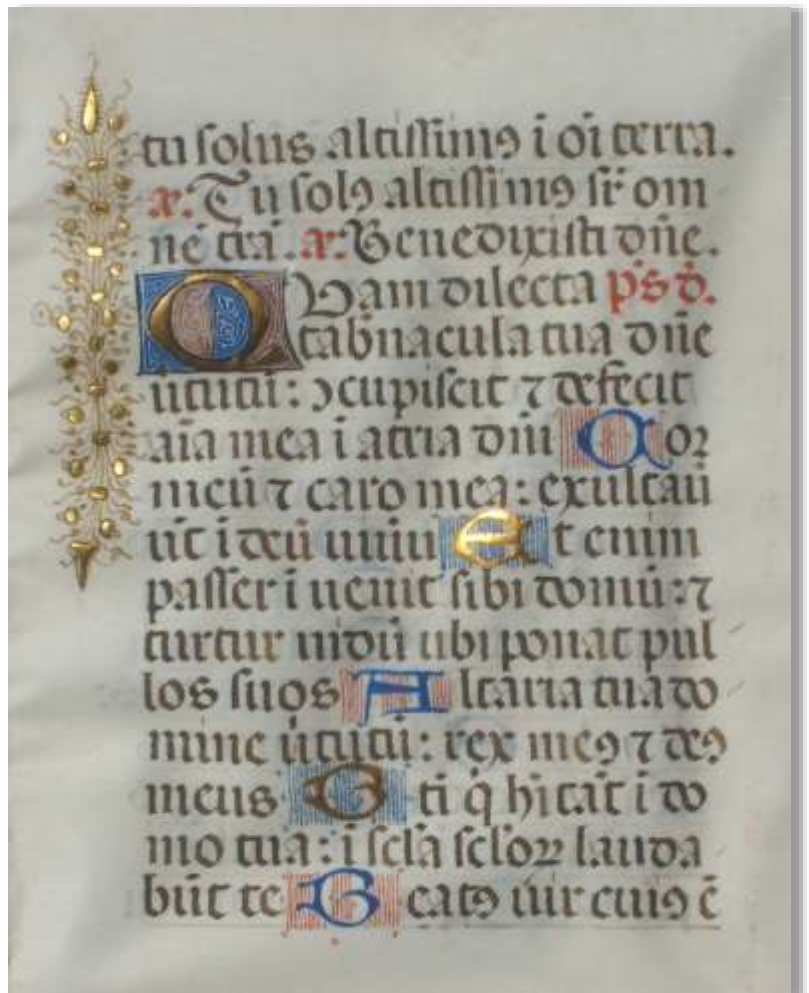 tu solus altissimꝰ ī oī terra.
a. Tu solꝰ altissimꝰ sr̄ om
nē trā. a. Benedixisti dn̄e.
QUam dilecta ps̄ d̄.
tabn̄acula tua dn̄e
ūtutū: ↄcupiscit ⁊ defecit
aīa mea ī atria dn̄i Cor
meū ⁊ caro mea: exultaū
ūt ī deū uiuū Et enim
passer īuenit sibi domū: ⁊
turtur nidū ubi ponat pul
los suos Altaria tua do
mine ūtutū: rex meꝰ ⁊ deꝰ
meus Bti q̄ hītāt ī do
mo tua: ī scl̄a scl̄oꝝ lauda
būt te Beatꝰ uir cuiꝰ ē